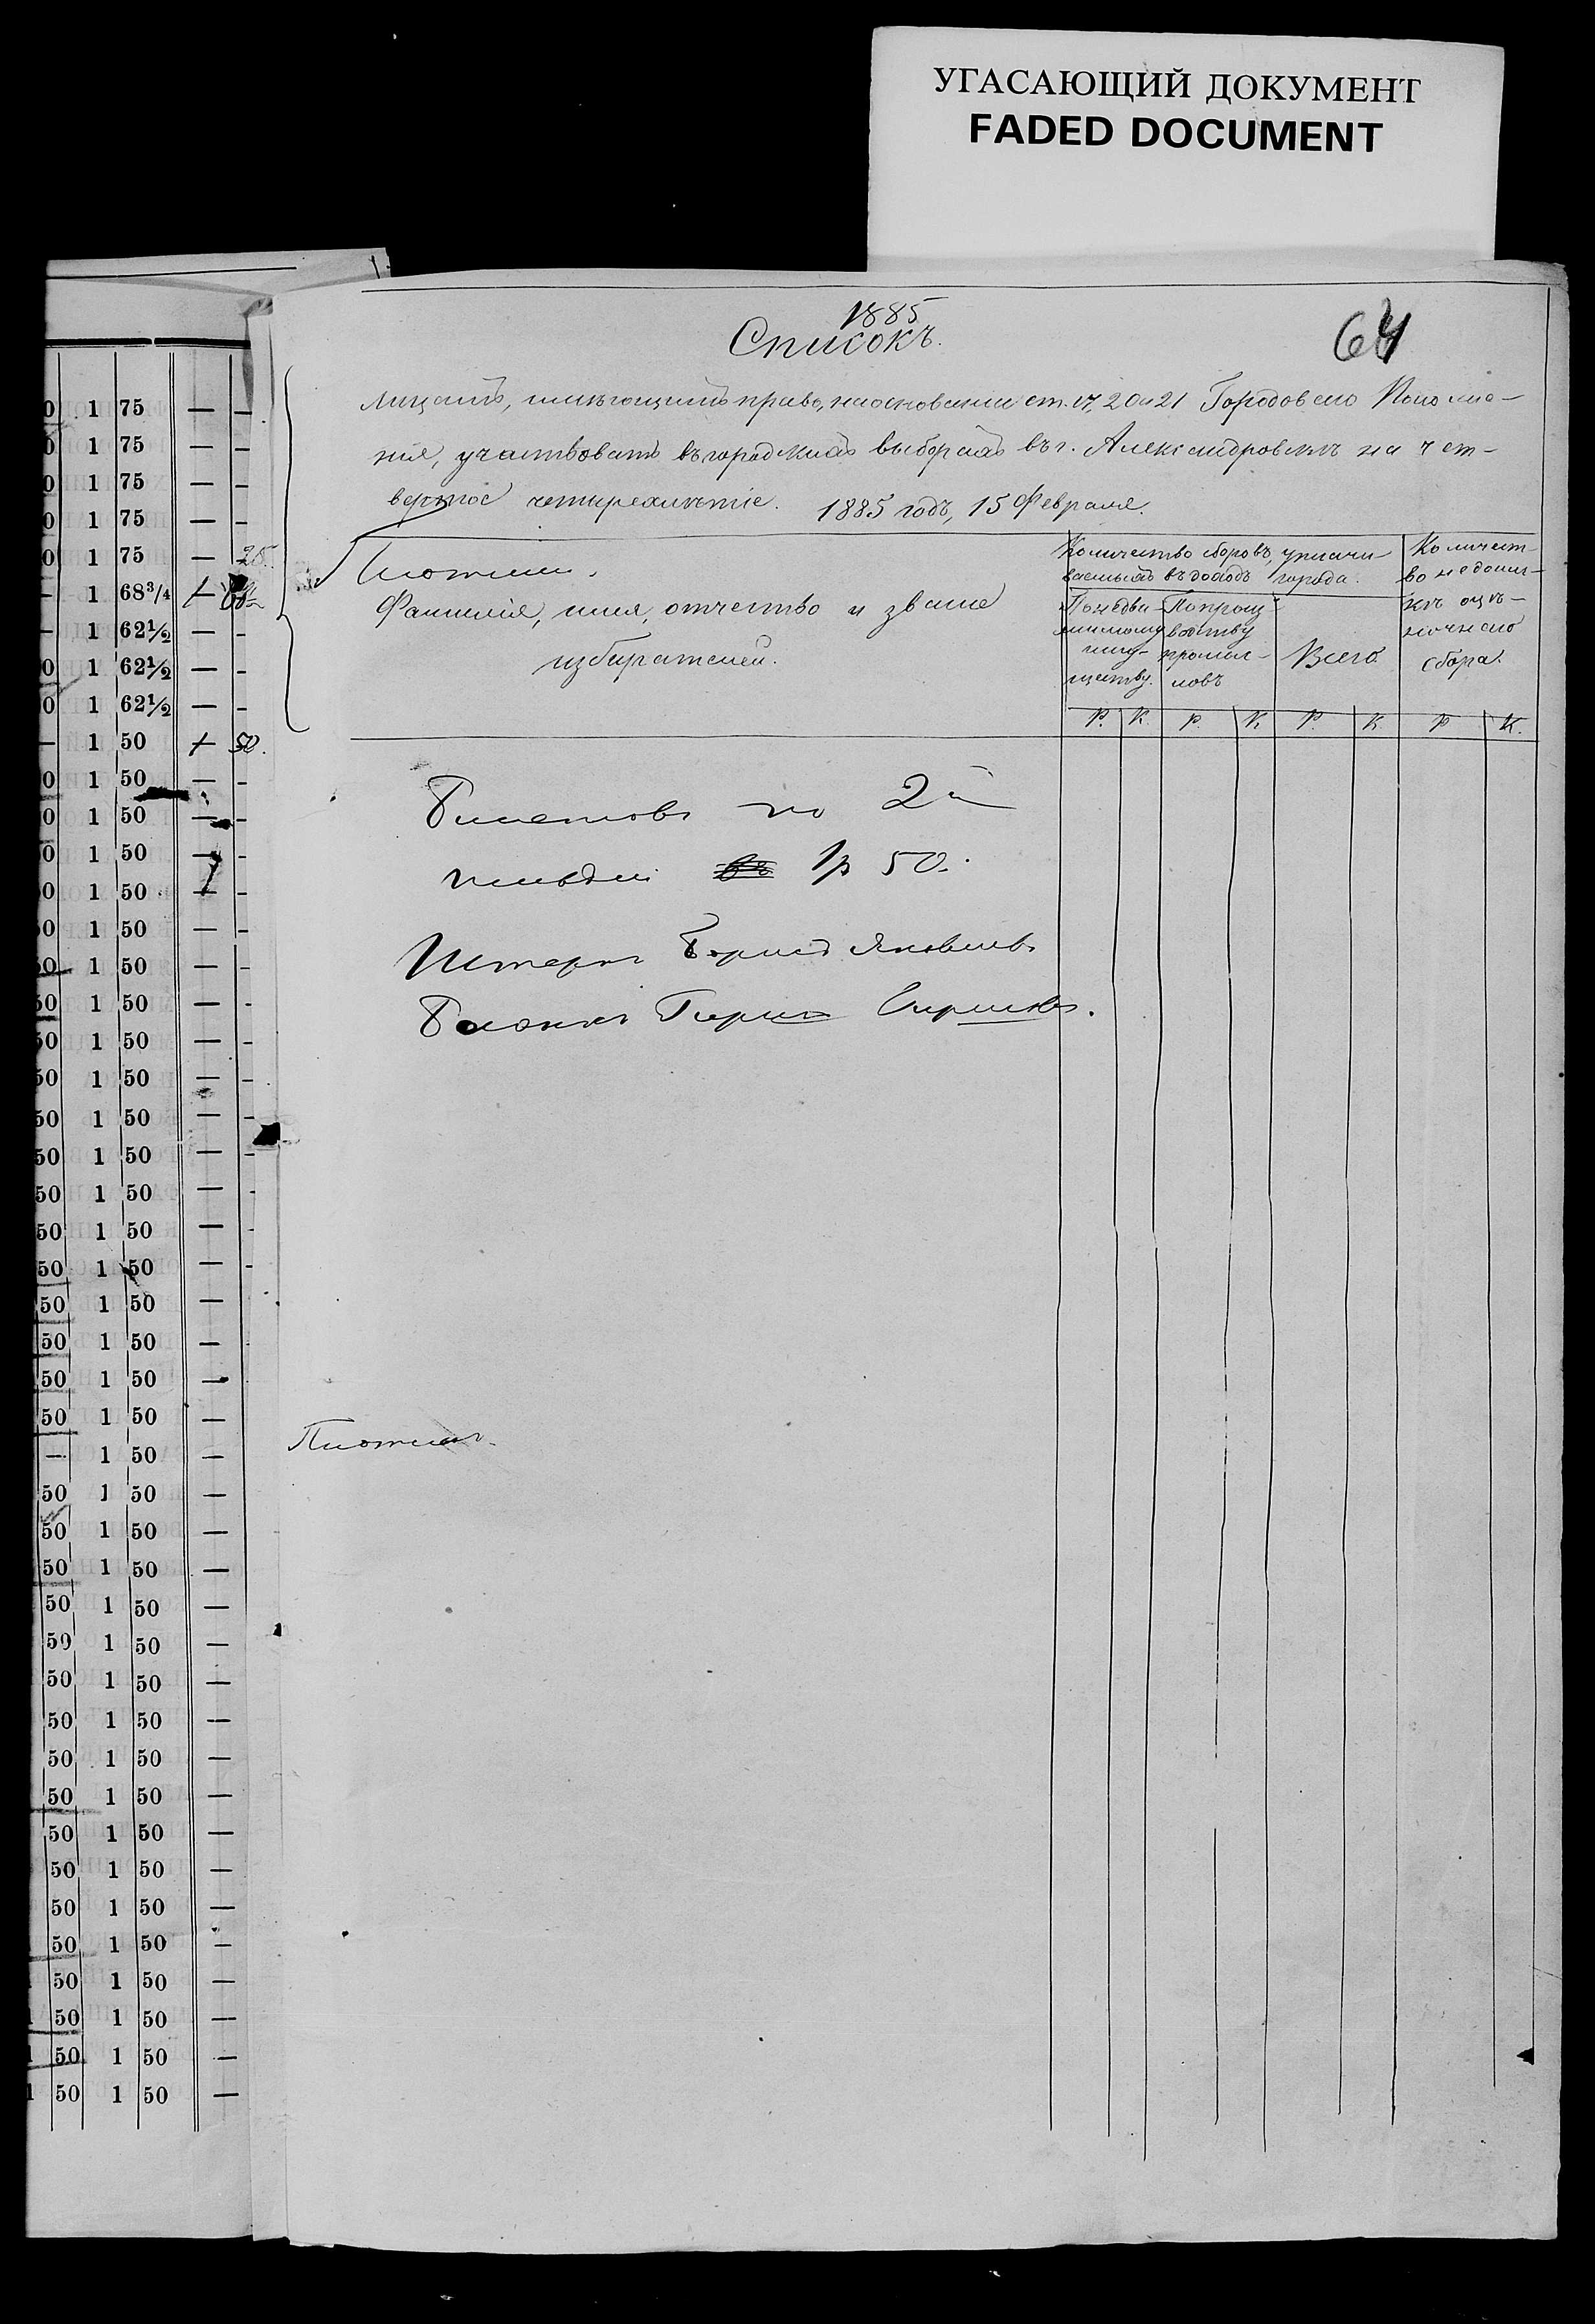 УГАСАЮЩИЙ ДОКУМЕНТ
FADED DOCUMENT
64
1885
Списокъ.
лицамъ, имѣющимъ право, на основании ст. 17, 20 и 21 Городоваго Положе-
нія, участвовать въ городскихъ выборахъ въ г. Александровскѣ на чет-
вертое четырехлѣтіе. 1885 годъ, 15 Февраля.
Фамилія, имя, отчество и званіе
избирателей.
Количество сборовъ, уплачи-
ваемыхъ въ доходъ города.
По недви-
жимому
иму-
ществу.
По произ-
водству
промыс-
ловъ
Всего
Количест-
во недоим-
къ оцѣ-
ночнаго
сбора.
Р. К. Р. К. Р. К. Р. К.
по 2
1р 50.
Борисъ Яковлевъ
0 1 75 — —
0 1 75 — —
0 1 75 — —
0 1 75 — —
0 1 75 —
— 1 68 3/4
— 1 62 1/2 — —
0 1 62 1/2 — —
0 1 62 1/2 — —
— 1 50 50.
0 1 50 — —
0 1 50 — —
50 1 50 — —
50 1 50 — —
50 1 50 — —
50 1 50 — —
50 1 50 — —
50 1 50 — —
50 1 50 — —
50 1 50 — —
50 1 50 — —
50 1 50 — —
50 1 50 — —
50 1 50 — —
50 1 50 —
50 1 50 —
50 1 50 —
50 1 50 —
— 1 50 —
50 1 50 —
50 1 50 —
50 1 50 —
50 1 50 —
50 1 50 —
50 1 50 —
50 1 50 —
50 1 50 —
50 1 50 —
50 1 50 —
50 1 50 —
50 1 50 —
50 1 50 —
50 1 50 —
50 1 50 —
50 1 50 —
50 1 50 —